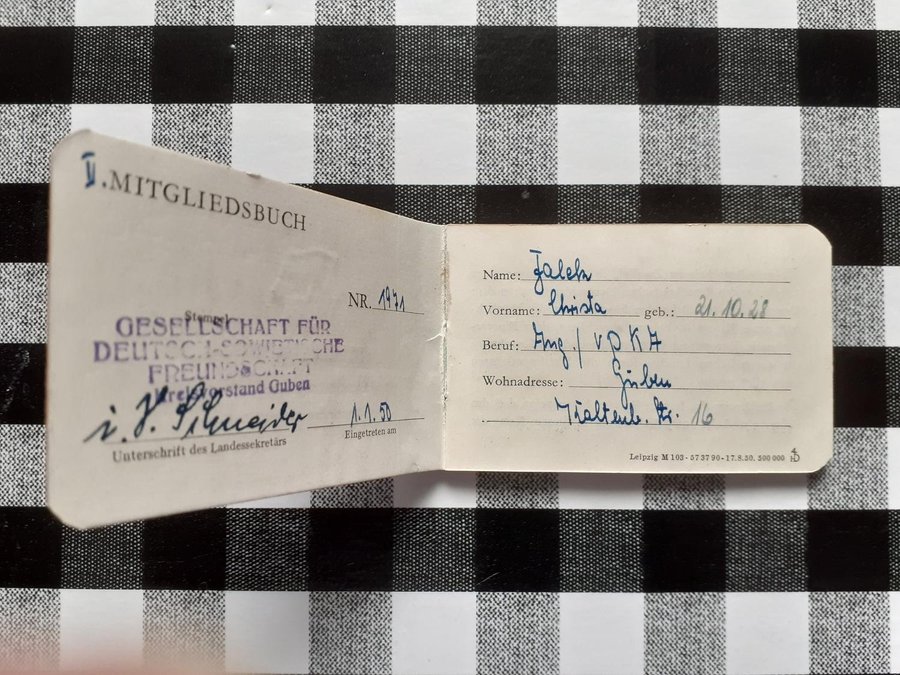 II. MITGLIEDSBUCH
NR. 1971
Stempel
GESELLSCHAFT FÜR
DEUTSCH-SOWJETISCHE
FREUNDSCHAFT
Kreisvorstand Guben
i. V. Schneider 1.1.50
Unterschrift des Landessekretärs Eingetreten am
Name:
Vorname: Christa geb.: 21.10.28
Beruf: Ang./ VPKA
Wohnadresse: Guben
Kaltenb. Str. 16
Leipzig M 103 - 573790 - 17.8.50. 300000